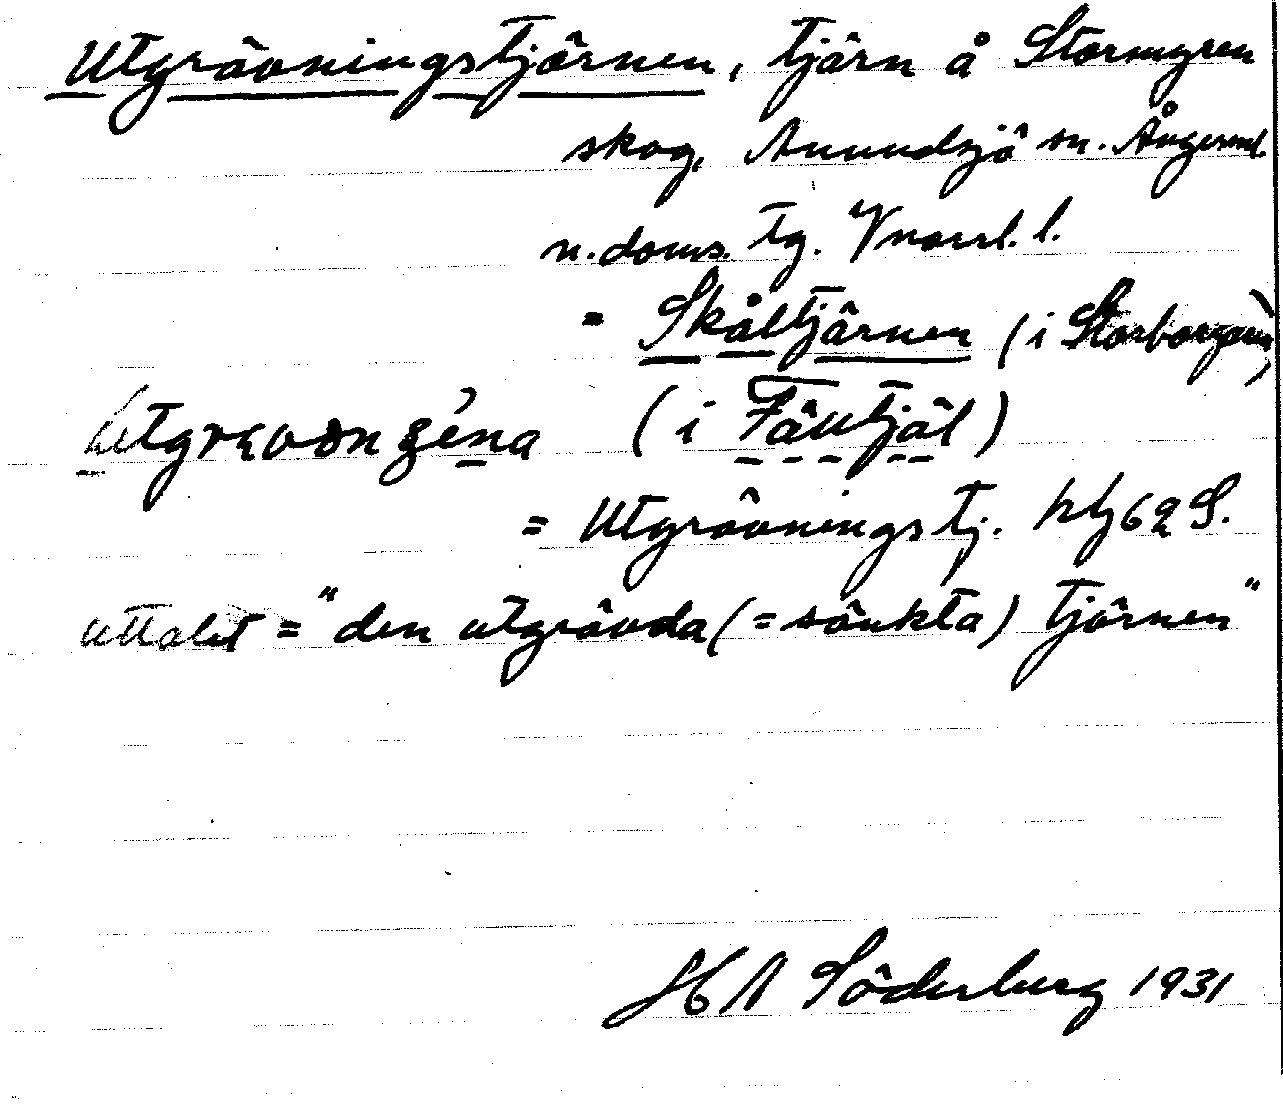 Utgrävningstjärnen, tjärn å Stormyren
skog, Anundsjö sn. Ångerml.
n. doms. tg. Vnorrl. l.
= Skåltjärnen (i Storborgaren)
(i Fäutjäl)
= Utgrävningstj. hfj 62 S.
uttalet = "den utgrävda (= sänkta) tjärnen"
HA Söderberg 1931